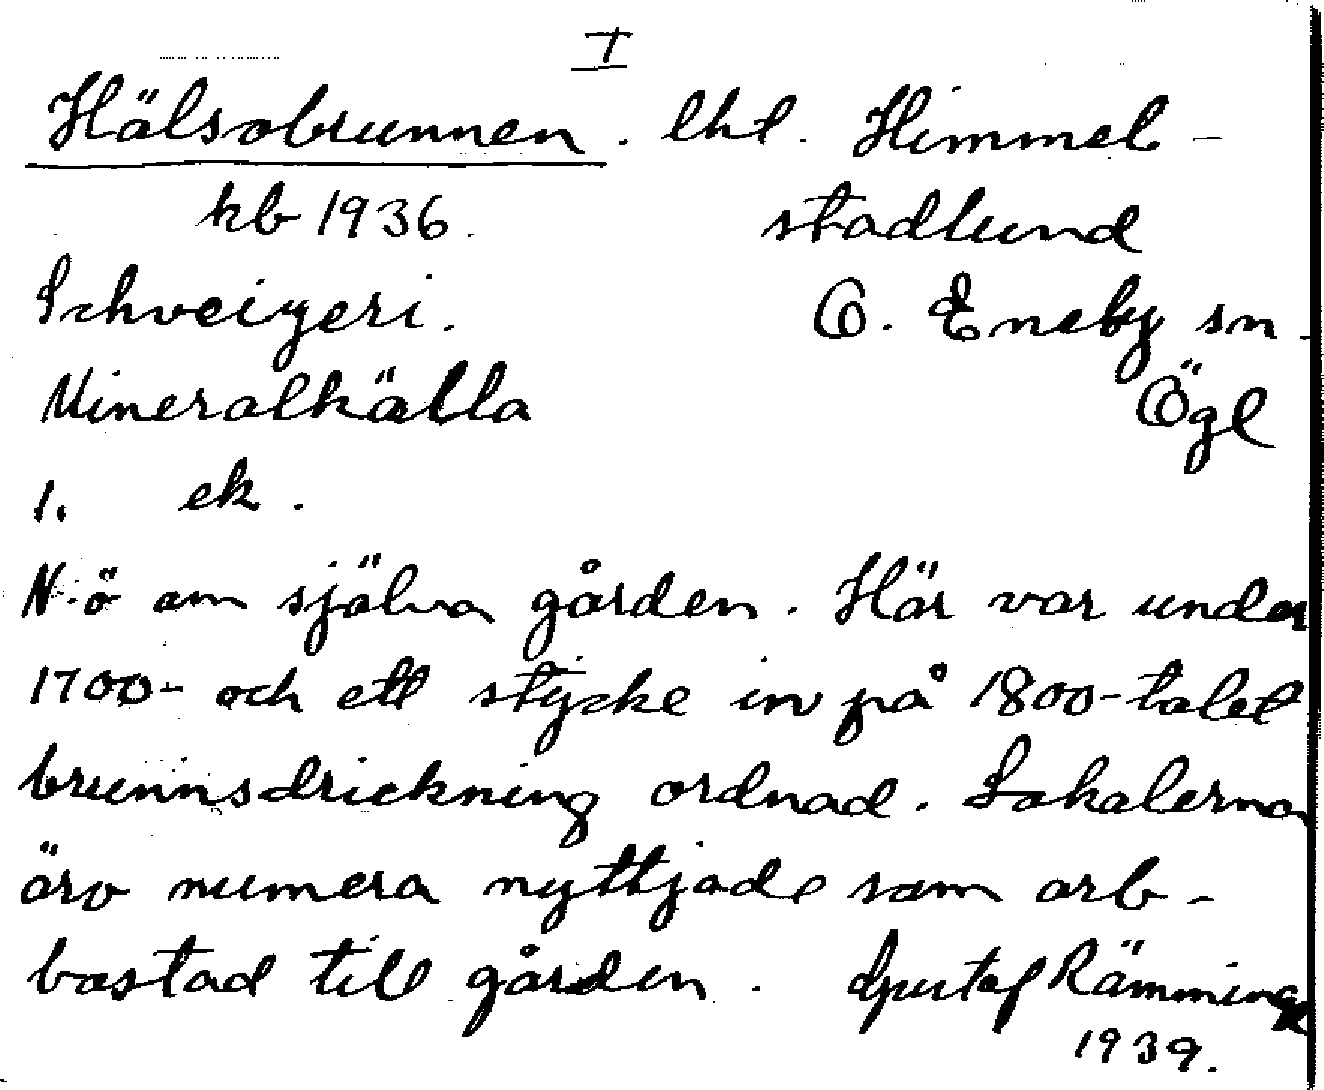 I
Hälsobrunnen. lht. Himmel-
kb 1936. stadlund
Schveizeri. Ö. Eneby sn.
Mineralkälla Ögl
1. ek.
N.ö om själva gården. Här var under
1700- och ett stycke in på 1800-talet
brunnsdrickning ordnad. Lokalerna
äro numera nyttjade som arb-
bostad till gården. Gustaf Rämming
1939.